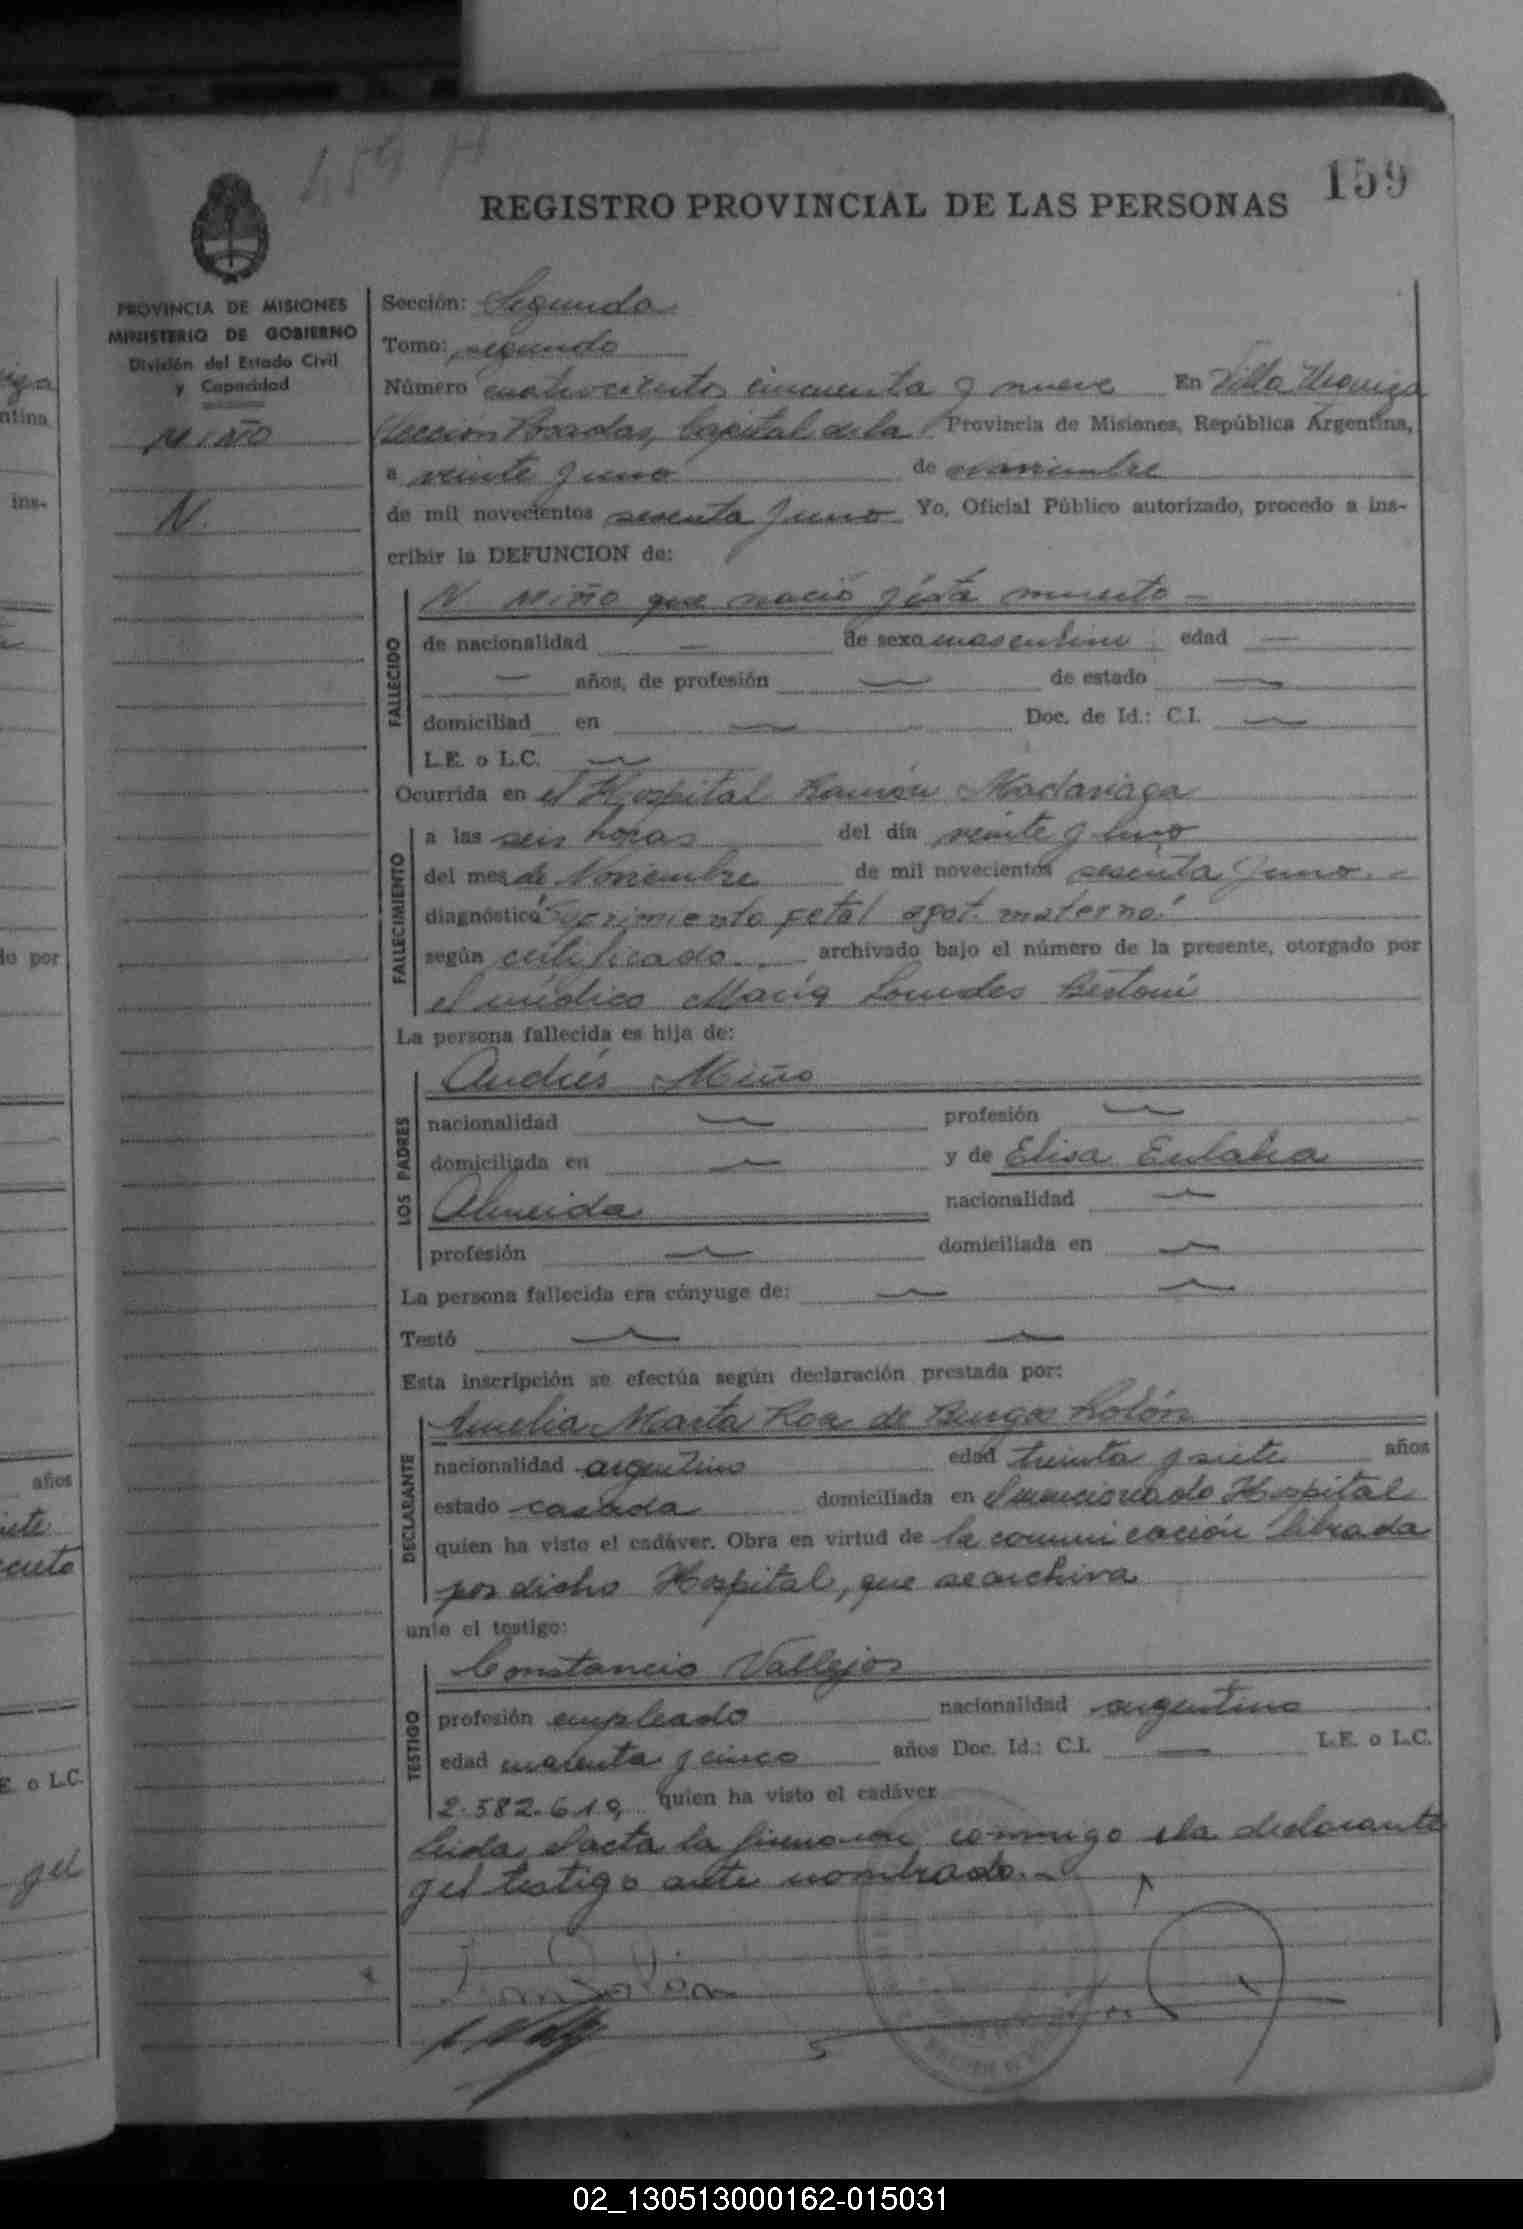 459 A
159
REGISTRO PROVINCIAL DE LAS PERSONAS
PROVINCIA DE MISIONES
MINISTERIO DE GOBIERNO
División del Estado Civil
y Capacidad
MIÑO
N.
Sección: Segunda
Tomo: segundo
Número cuatrocientos cincuenta y nueve En Villa Urquiza
Sección Posadas, Capital de la Provincia de Misiones, República Argentina,
a veinte y uno de noviembre
de mil novecientos sesenta y uno Yo, Oficial Público autorizado, procedo a ins-
cribir la DEFUNCION de:
FALLECIDO
N MIÑO que nació y está muerto —
de nacionalidad — de sexo masculino edad —
— años, de profesión — de estado —
domiciliad en — Doc. de Id.: C.I. —
L.E. o L.C. —
Ocurrida en el Hospital Ramón Madariaga
FALLECIMIENTO
a las seis horas del día veinte y uno
del mes de Noviembre de mil novecientos sesenta y uno. —
diagnóstico fetal agot. materno
según certificado archivado bajo el número de la presente, otorgado por
el médico María Lourdes Bertoni
La persona fallecida es hija de:
LOS PADRES
Andrés Miño
nacionalidad — profesión —
domiciliada en — y de Elisa Eulalia
Almeida nacionalidad —
profesión — domiciliada en —
La persona fallecida era cónyuge de: — —
Testó — —
Esta inscripción se efectúa según declaración prestada por:
DECLARANTE
Amelia Marta Roa de Burgos Rolón
nacionalidad argentina edad treinta y siete años
estado casada domiciliada en el mencionado Hospital
quien ha visto el cadáver. Obra en virtud de la comunicación librada
por dicho Hospital, que se archiva
ante el testigo:
TESTIGO
Constancio Vallejos
profesión empleado nacionalidad argentino
edad cuarenta y cinco años Doc. Id.: C.I. — L.E. o L.C.
2.582.619, quien ha visto el cadáver
Leida el acta la firmaron conmigo la declarante
y el testigo ante nombrado. —
02_130513000162-015031